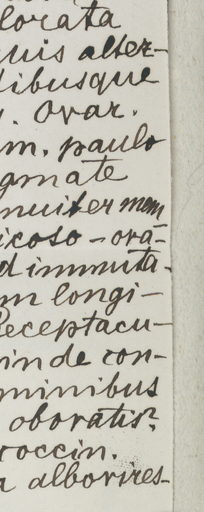 lorata
uis alter-
libusque
. Ovar.
m. paulo
gmate
nuiter mem
icoso-ova-
d immuta-
m longi-
Receptacu-
in de con-
minibus
obovatis?
roccin.
a alborires-